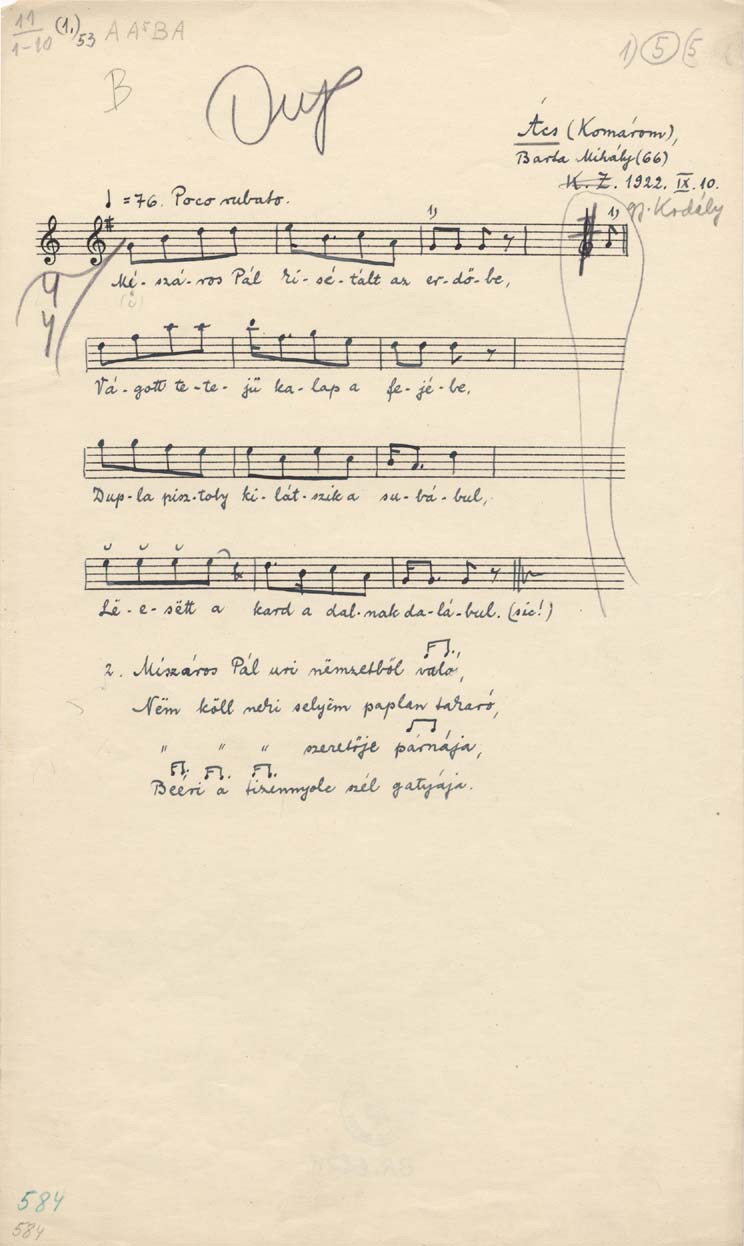 11
1-10 (1.) 53 A A⁵ B A
1) 5 (5
B
Dup
Ács (Komárom),
Barta Mihály (66)
K. Z. 1922. IX. 10.
gy. Kodály
♩ = 76. Poco rubato.
1) 1)
4
4
Mé-szá-ros Pál ki-sé-tált az er-dő-be,
(i)
Vá-gott te-te-jű ka-lap a fe-jé-be,
Dup-la pisz-toly ki-lát-szik a su-bá-bul,
Lë-e-sëtt a kard a dal-nak da-lá-bul. (sic!)
2. Míszáros Pál uri nëmzetből való,
Nëm köll neki selyëm paplan takaró,
" " " szeretője párnája,
Beéri a tizennyolc szél gatyája.
584
584